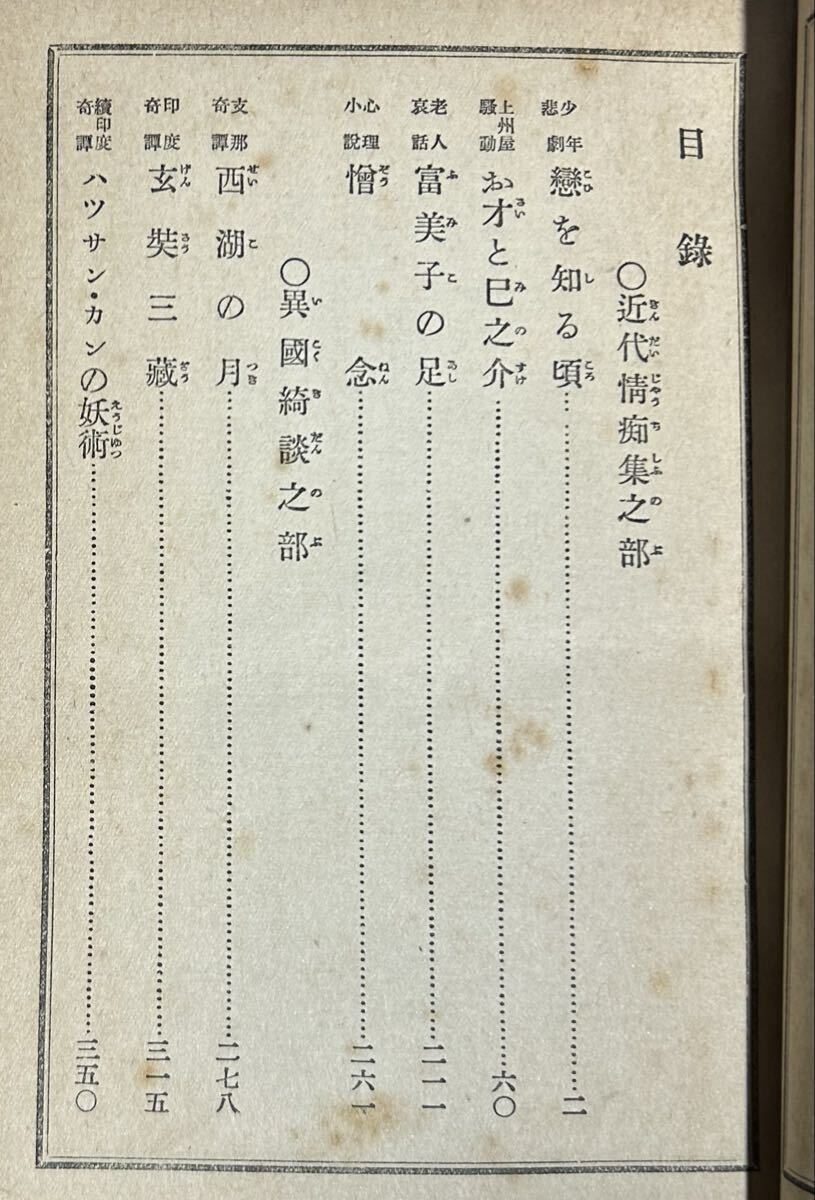 目錄
〇近代情痴集之部
少年悲劇 戀を知る頃…二
上州屋騷動 お才と巳之介…六〇
老人哀話 富美子の足…二一一
心理小說 憎念…二六一
〇異國綺談之部
支那奇譚 西湖の月…二七八
印度奇譚 玄奘三藏…三一五
續印度奇譚 ハツサン・カンの妖術…三五〇